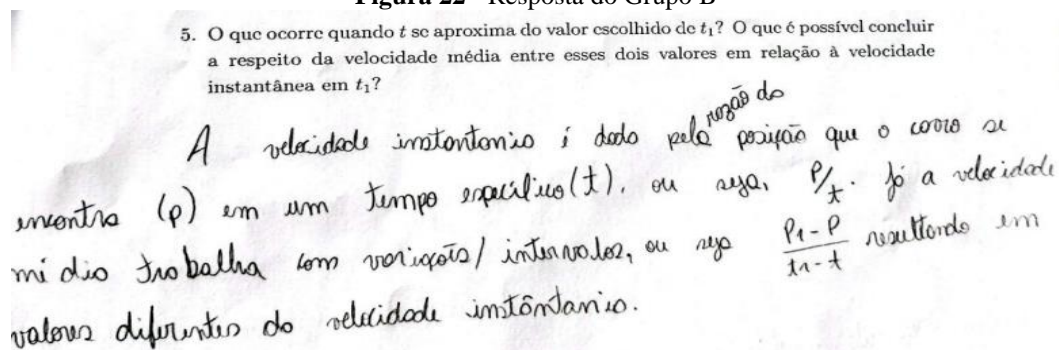 Figura 22 - Resposta do Grupo B
5. O que ocorre quando t se aproxima do valor escolhido de t₁? O que é possível concluir
a respeito da velocidade média entre esses dois valores em relação à velocidade
instantânea em t₁?
A velocidade instantania é dado pela razão da posição que o carro se
encontra (p) em um tempo específico (t), ou seja, P/t. Já a velocidade
média trabalha com variações/intervalos, ou seja P₁-P/t₁-t resultando em
valores diferentes da velocidade instântania.